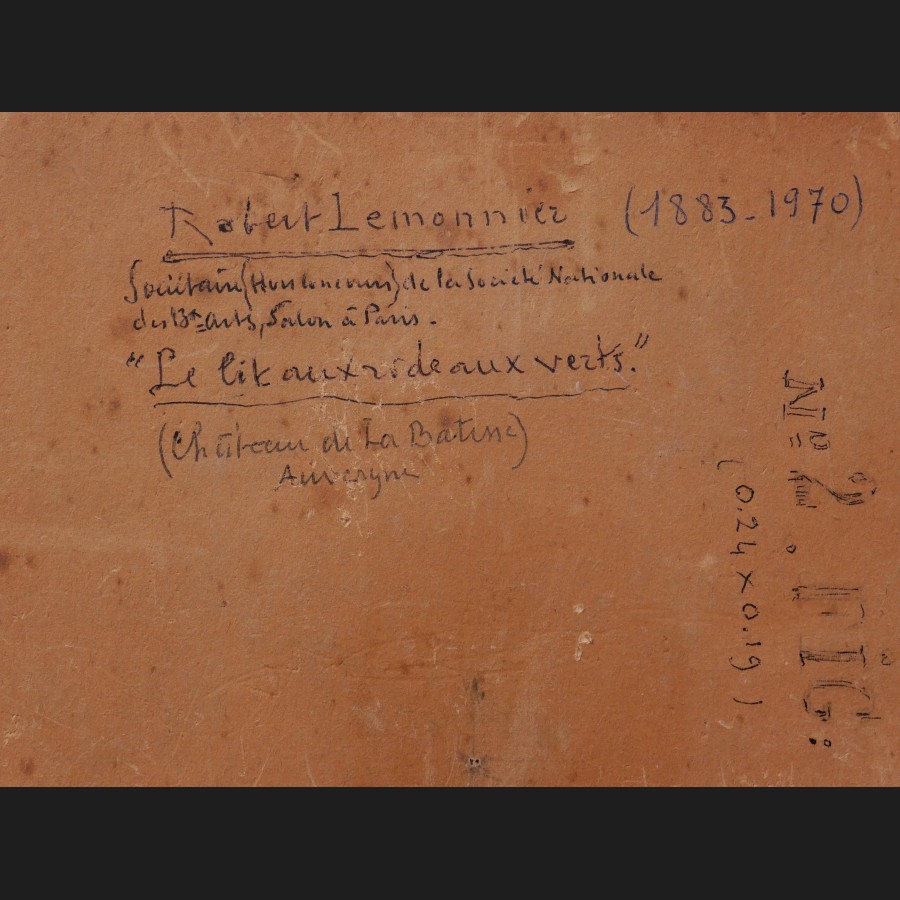 Robert Lemonnier (1883-1970)
Sociétaire (Hors Concours) de la Société Nationale
des Bx=Arts, Salon à Paris -
"Le lit aux rideaux verts."
(Château de La Batisse)
Auvergne
No= 2. FIG:
(0.24 x 0.19)